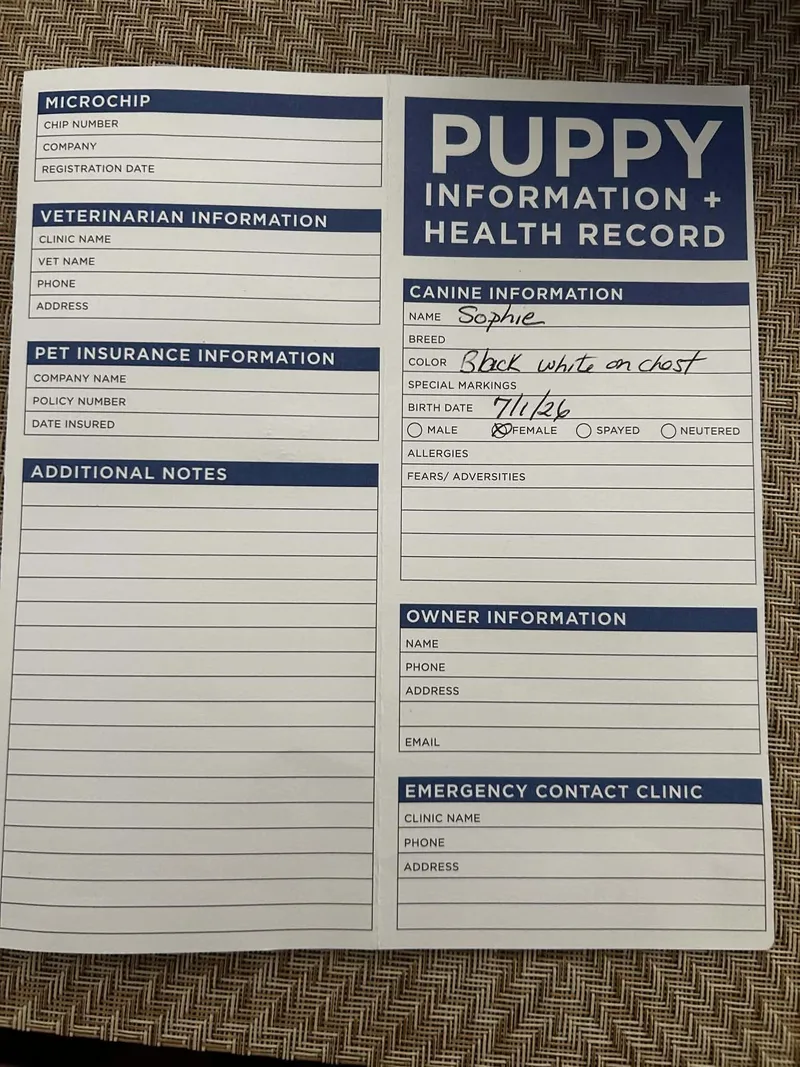 MICROCHIP
CHIP NUMBER
COMPANY
REGISTRATION DATE
VETERINARIAN INFORMATION
CLINIC NAME
VET NAME
PHONE
ADDRESS
PET INSURANCE INFORMATION
COMPANY NAME
POLICY NUMBER
DATE INSURED
ADDITIONAL NOTES
PUPPY
INFORMATION +
HEALTH RECORD
CANINE INFORMATION
NAME Sophie
BREED
COLOR Black white on chest
SPECIAL MARKINGS
BIRTH DATE 7/1/26
MALE FEMALE SPAYED NEUTERED
ALLERGIES
FEARS/ ADVERSITIES
OWNER INFORMATION
NAME
PHONE
ADDRESS
EMAIL
EMERGENCY CONTACT CLINIC
CLINIC NAME
PHONE
ADDRESS